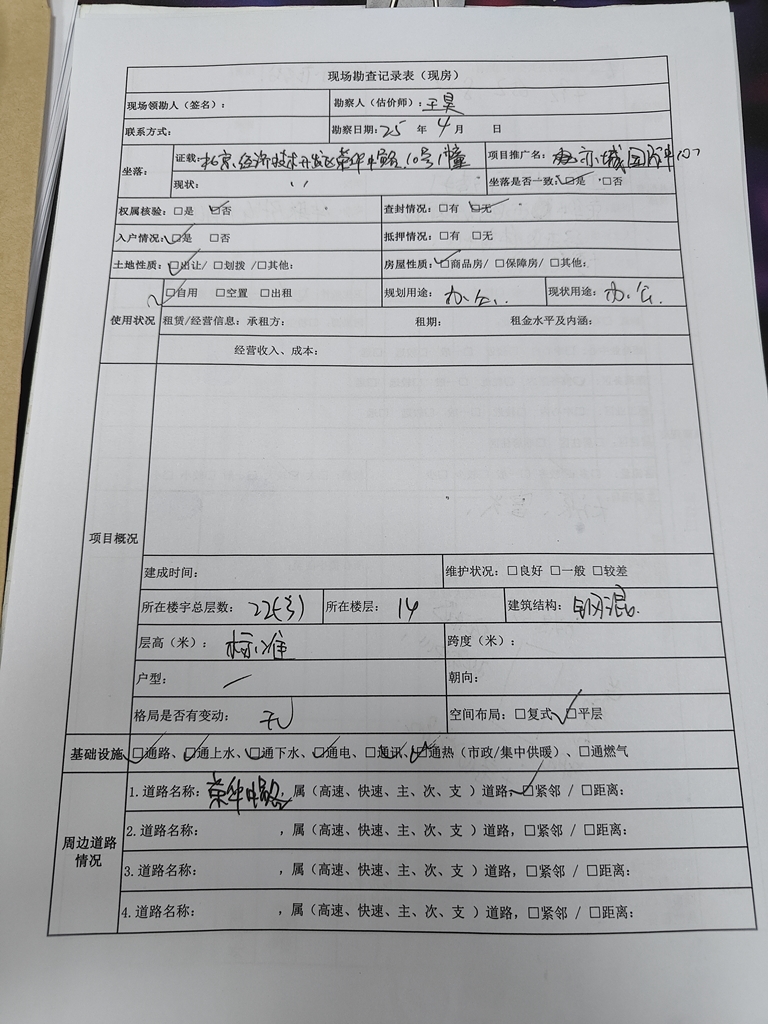 现场勘查记录表（现房）
现场领勘人（签名）： 勘察人（估价师）：王昊
联系方式： 勘察日期：25 年 4 月 日
坐落： 证载：北京经济技术开发区荣华中路10号1幢 项目推广名：亦城国际中心
现状： 〃 坐落是否一致：☑是 □否
权属核验：□是 ☑否 查封情况：□有 ☑无
入户情况：☑是 □否 抵押情况：□有 □无
土地性质：☑出让/ □划拨 /□其他： 房屋性质：☑商品房/ □保障房/ □其他：
使用状况 ☑自用 □空置 □出租 规划用途：办公. 现状用途：办公.
租赁/经营信息：承租方： 租期： 租金水平及内涵：
经营收入、成本：
项目概况
建成时间： 维护状况：□良好 □一般 □较差
所在楼宇总层数：22( ) 所在楼层：14 建筑结构：钢混.
层高（米）：标准 跨度（米）：
户型：／ 朝向：
格局是否有变动：无 空间布局：□复式 ☑平层
基础设施 ☑通路、☑通上水、☑通下水、☑通电、☑通讯、☑通热（市政/集中供暖）、□通燃气
周边道路情况 1.道路名称：荣华中路，属（高速、快速、主、次、支 ）道路，☑紧邻 / □距离：
2.道路名称： ，属（高速、快速、主、次、支 ）道路，□紧邻 / □距离：
3.道路名称： ，属（高速、快速、主、次、支 ）道路，□紧邻 / □距离：
4.道路名称： ，属（高速、快速、主、次、支 ）道路，□紧邻 / □距离：